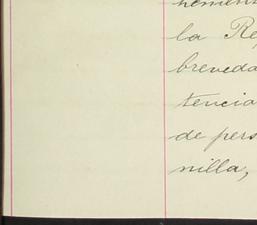 la Re
breveda
tencia
de pers
nilla,